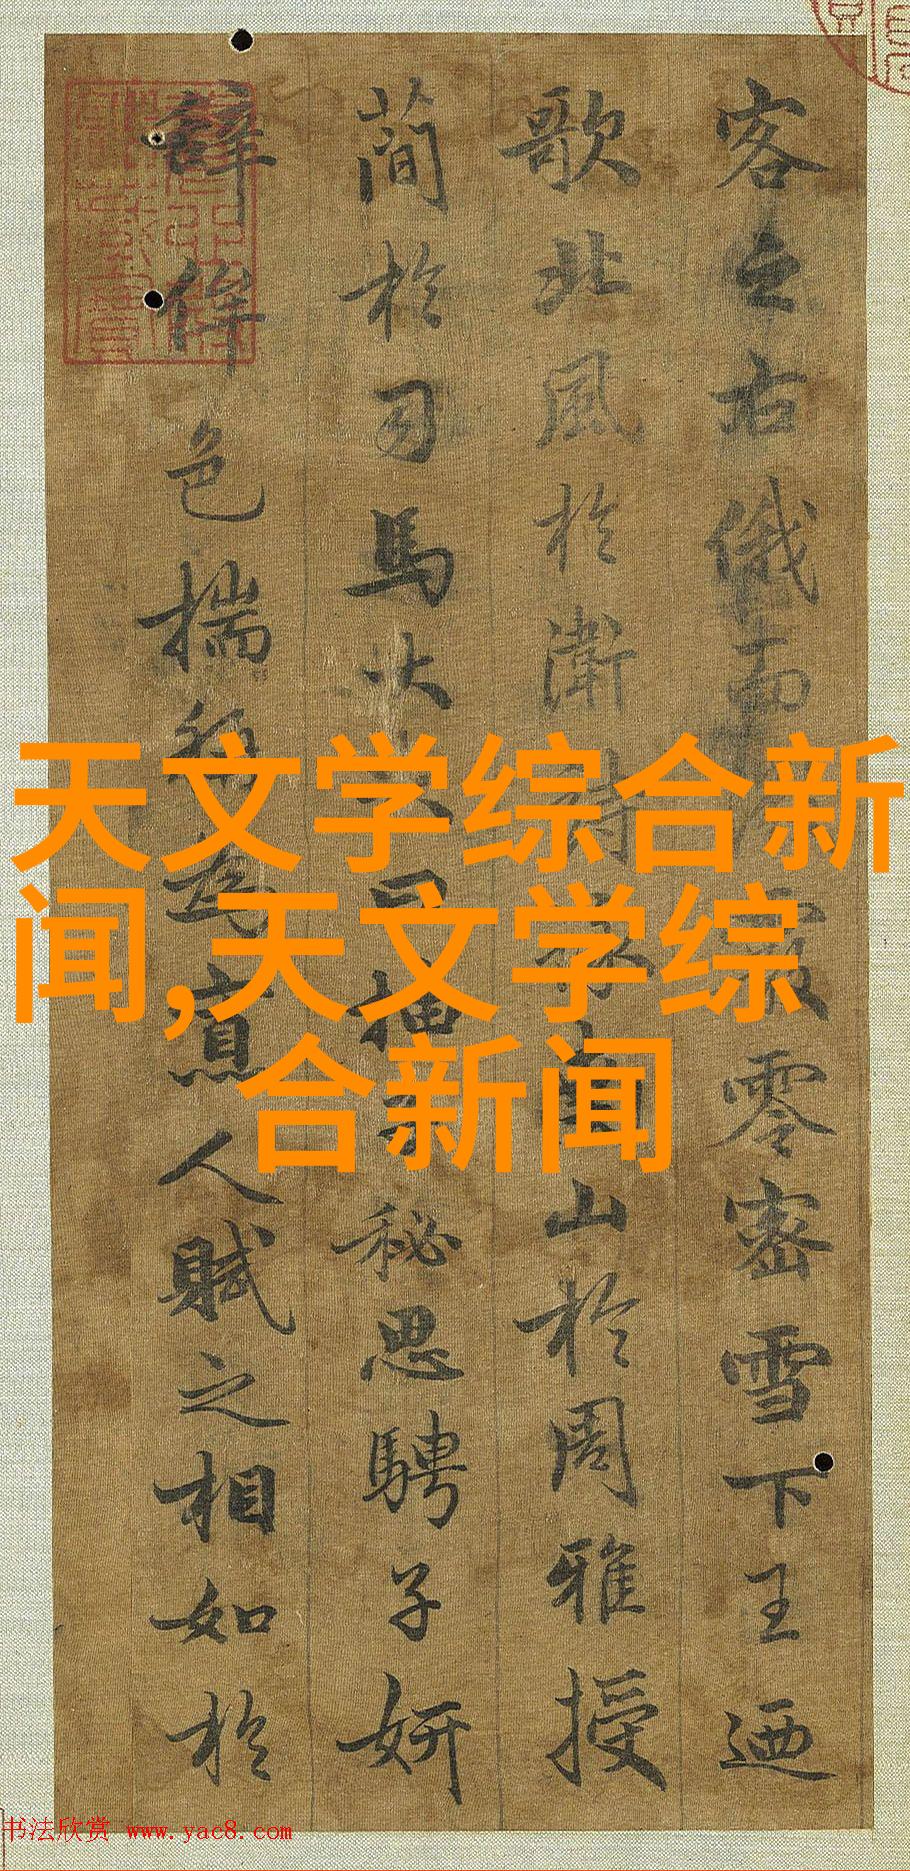 客之右俄而
零密雪下王迺
歌北風於衛
山於周雅授
蕳於司馬大
秘思騁子妍
辭侔色揣稱為
寡人賦之相如於
天文学综合新
闻,天文学综
合新闻
书法欣赏 www.yac8.com